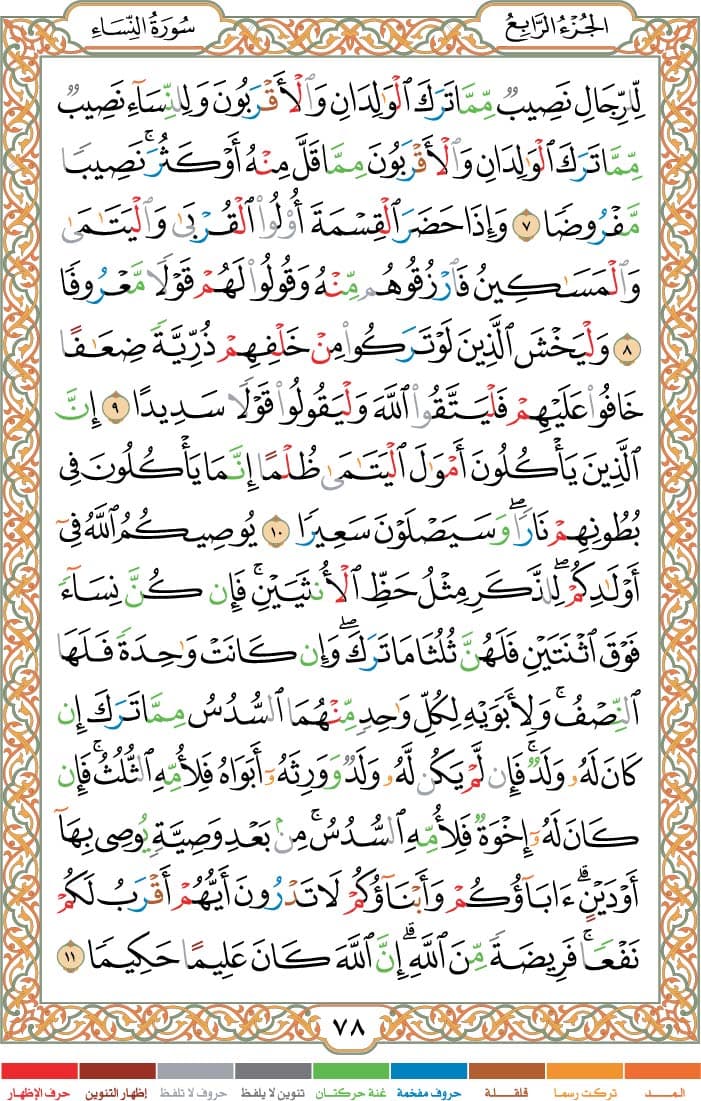 الجُزْءُ الرَّابِعُ
سُورَةُ النِّسَاءِ
لِّلرِّجَالِ نَصِيبٌ مِّمَّا تَرَكَ ٱلْوَٰلِدَانِ وَٱلْأَقْرَبُونَ وَلِلنِّسَآءِ نَصِيبٌ
مِّمَّا تَرَكَ ٱلْوَٰلِدَانِ وَٱلْأَقْرَبُونَ مِمَّا قَلَّ مِنْهُ أَوْ كَثُرَ ۚ نَصِيبًا
مَّفْرُوضًا ٧ وَإِذَا حَضَرَ ٱلْقِسْمَةَ أُو۟لُوا۟ ٱلْقُرْبَىٰ وَٱلْيَتَٰمَىٰ
وَٱلْمَسَٰكِينُ فَٱرْزُقُوهُم مِّنْهُ وَقُولُوا۟ لَهُمْ قَوْلًا مَّعْرُوفًا
٨ وَلْيَخْشَ ٱلَّذِينَ لَوْ تَرَكُوا۟ مِنْ خَلْفِهِمْ ذُرِّيَّةً ضِعَٰفًا
خَافُوا۟ عَلَيْهِمْ فَلْيَتَّقُوا۟ ٱللَّهَ وَلْيَقُولُوا۟ قَوْلًا سَدِيدًا ٩ إِنَّ
ٱلَّذِينَ يَأْكُلُونَ أَمْوَٰلَ ٱلْيَتَٰمَىٰ ظُلْمًا إِنَّمَا يَأْكُلُونَ فِى
بُطُونِهِمْ نَارًا ۖ وَسَيَصْلَوْنَ سَعِيرًا ١٠ يُوصِيكُمُ ٱللَّهُ فِىٓ
أَوْلَٰدِكُمْ ۖ لِلذَّكَرِ مِثْلُ حَظِّ ٱلْأُنثَيَيْنِ ۚ فَإِن كُنَّ نِسَآءً
فَوْقَ ٱثْنَتَيْنِ فَلَهُنَّ ثُلُثَا مَا تَرَكَ ۖ وَإِن كَانَتْ وَٰحِدَةً فَلَهَا
ٱلنِّصْفُ ۚ وَلِأَبَوَيْهِ لِكُلِّ وَٰحِدٍ مِّنْهُمَا ٱلسُّدُسُ مِمَّا تَرَكَ إِن
كَانَ لَهُۥ وَلَدٌ ۚ فَإِن لَّمْ يَكُن لَّهُۥ وَلَدٌ وَوَرِثَهُۥٓ أَبَوَاهُ فَلِأُمِّهِ ٱلثُّلُثُ ۚ فَإِن
كَانَ لَهُۥٓ إِخْوَةٌ فَلِأُمِّهِ ٱلسُّدُسُ ۚ مِنۢ بَعْدِ وَصِيَّةٍ يُوصِى بِهَآ
أَوْ دَيْنٍ ۗ ءَابَآؤُكُمْ وَأَبْنَآؤُكُمْ لَا تَدْرُونَ أَيُّهُمْ أَقْرَبُ لَكُمْ
نَفْعًا ۚ فَرِيضَةً مِّنَ ٱللَّهِ ۗ إِنَّ ٱللَّهَ كَانَ عَلِيمًا حَكِيمًا ١١
٧٨
المـــد
تركت رسما
قلقـــلة
حروف مفخمة
غنة حركتان
تنوين لا يلفظ
حروف لا تلفظ
إظهار التنوين
حرف الإظهار